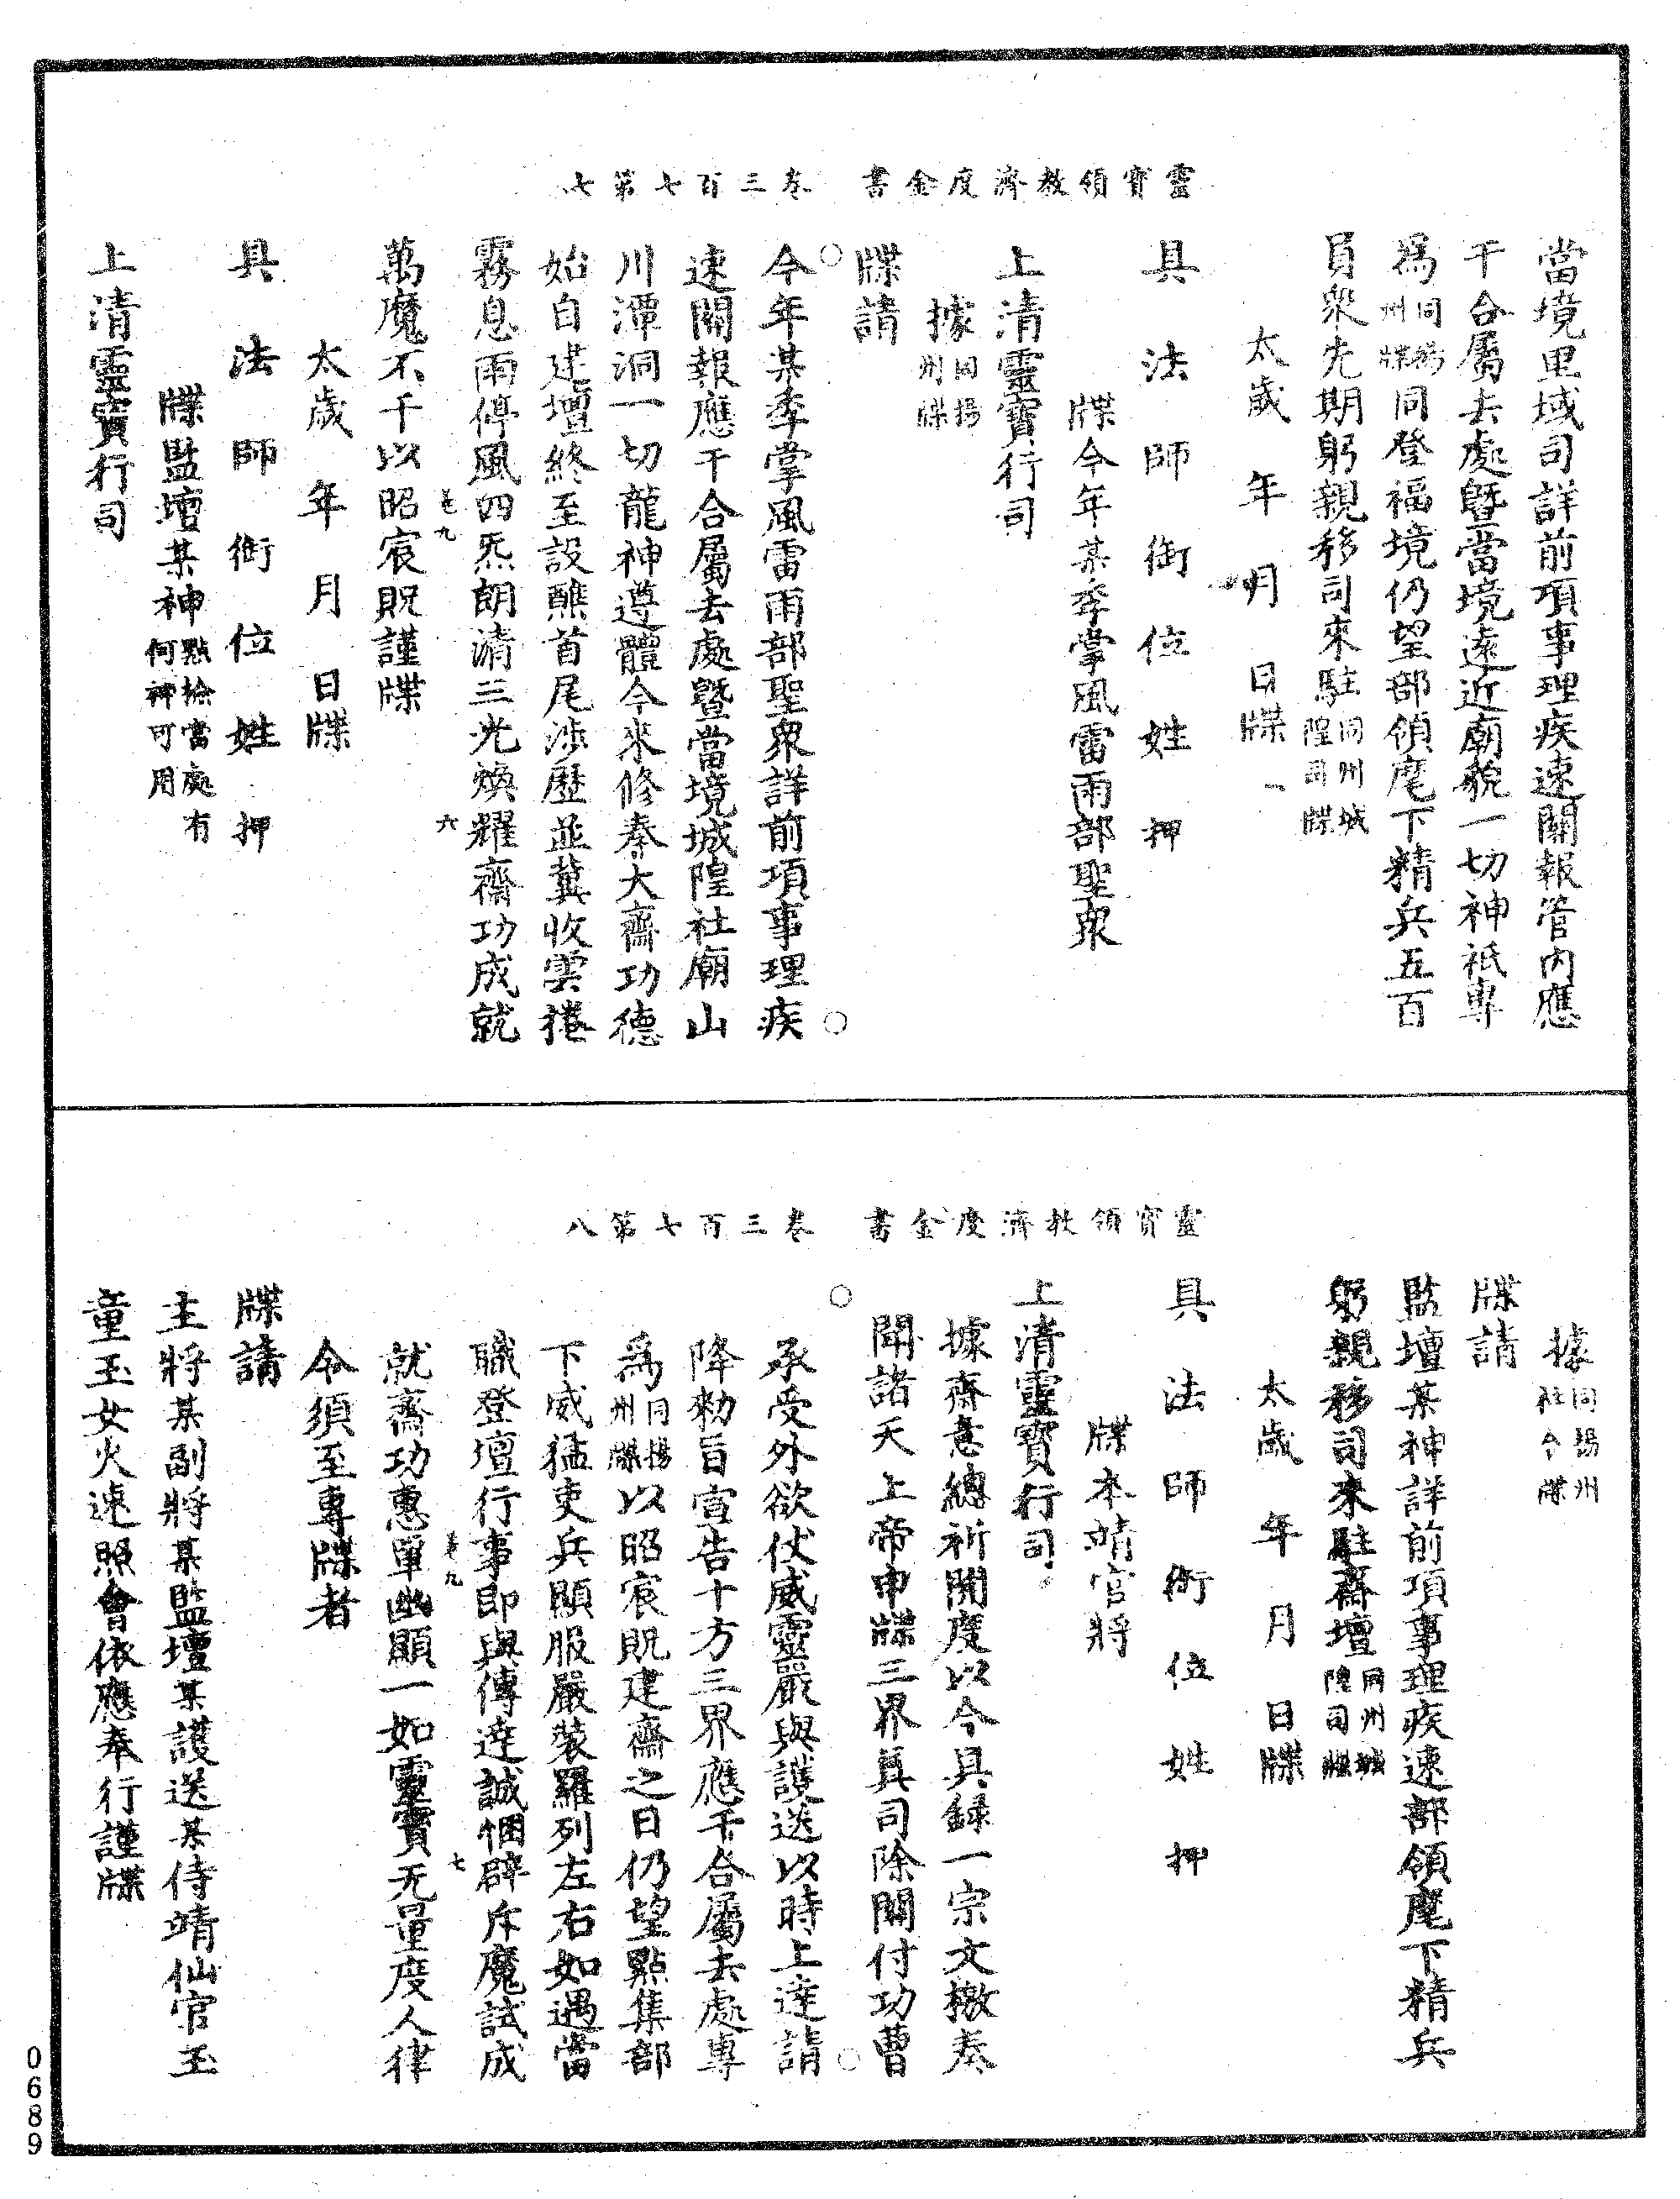 靈寶領教濟度金書　卷三百七第七
當境里域司詳前項事理疾速關報管內應
干合屬去處曁當境遠近廟貌一切神祇專
爲同揚州牒同登福境仍望部領麾下精兵五百
員衆先期躬親移司來駐同州城隍司牒
太歲　年　月　日牒
具法師銜位姓押
牒今年某季掌風雷雨部聖衆
上清靈寶行司
據同揚州牒
牒請
今年某季掌風雷雨部聖衆詳前項事理疾
速關報應干合屬去處曁當境城隍社廟山
川潭洞一切龍神遵體今來修奏大齋功德
始自建壇終至設醮首尾涉歷並冀收雲捲
霧息雨停風四炁朗清三光煥耀齋功成就
萬魔不干以昭宸貺謹牒
太歲　年　月　日牒
具法師銜位姓押
牒監壇某神點檢當處有何神可用
上清靈寶行司
靈寶領教濟度金書　卷三百七第八
據同揚州社令牒
牒請
監壇某神詳前項事理疾速部領麾下精兵
躬親移司來駐齋壇同州城隍司牒
太歲　年　月　日牒
具法師銜位姓押
牒本靖官將
上清靈寶行司
據齋意總祈開度以今具録一宗文檄奏
聞諸天上帝申牒三界眞司除關付功曹
承受外欲仗威靈嚴與護送以時上達請
降勑旨宣告十方三界應干合屬去處專
爲同揚州牒以昭宸貺建齋之日仍望點集部
下威猛吏兵顯服嚴裝羅列左右如遇當
職登壇行事即與傳達誠悃辟斥魔試成
就齋功惠單幽顯一如靈寶无量度人律
令須至專牒者
牒請
主將某副將某監壇某護送某侍靖仙官玉
童玉女火速照會依應奉行謹牒
0689